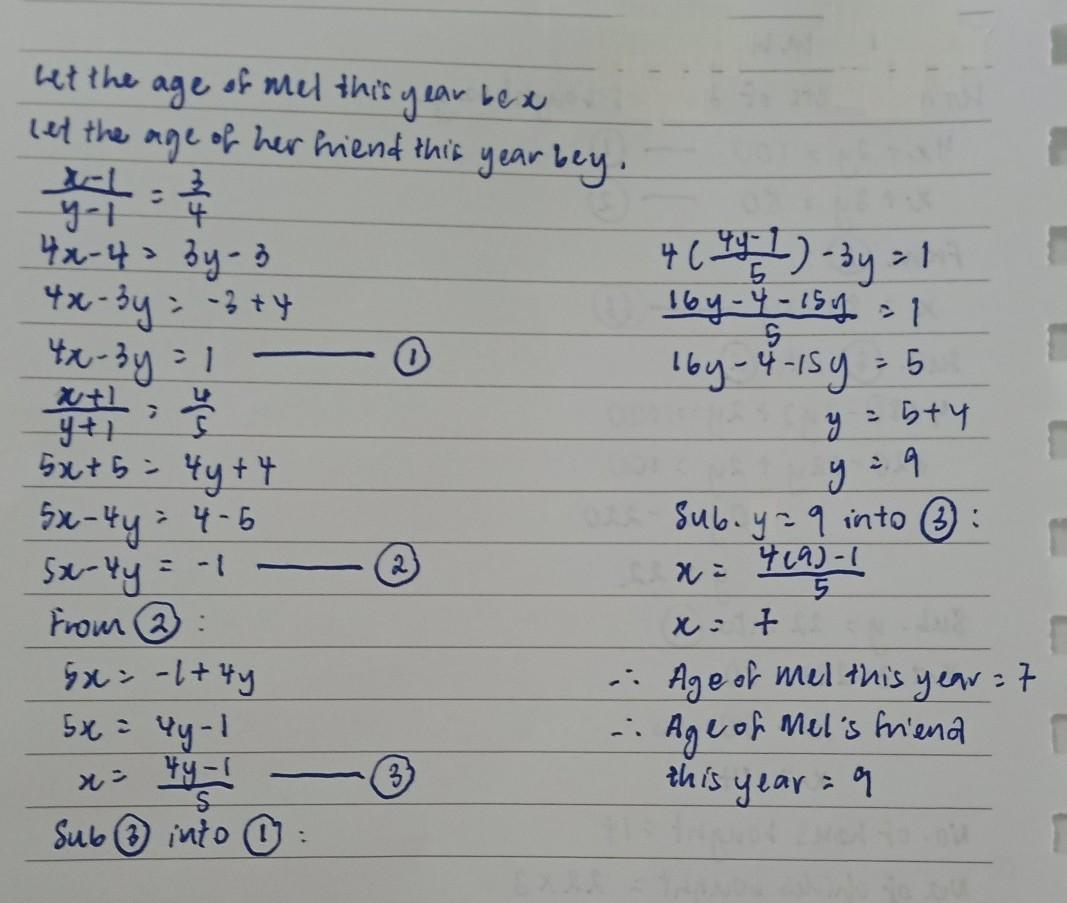 Let the age of Mel this year be x
Let the age of her friend this year be y.
x-1/y-1 = 3/4
4x-4 = 3y-3
4x-3y = -3+4
4x-3y = 1 ——— ①
x+1/y+1 = 4/5
5x+5 = 4y+4
5x-4y = 4-5
5x-4y = -1 ——— ②
From ②:
5x = -1+4y
5x = 4y-1
x = 4y-1/5 ——— ③
Sub ③ into ①:
4(4y-1/5)-3y = 1
16y-4-15y/5 = 1
16y-4-15y = 5
y = 5+4
y = 9
Sub. y = 9 into ③:
x = 4(9)-1/5
x = 7
∴ Age of Mel this year = 7
∴ Age of Mel's friend
this year = 9